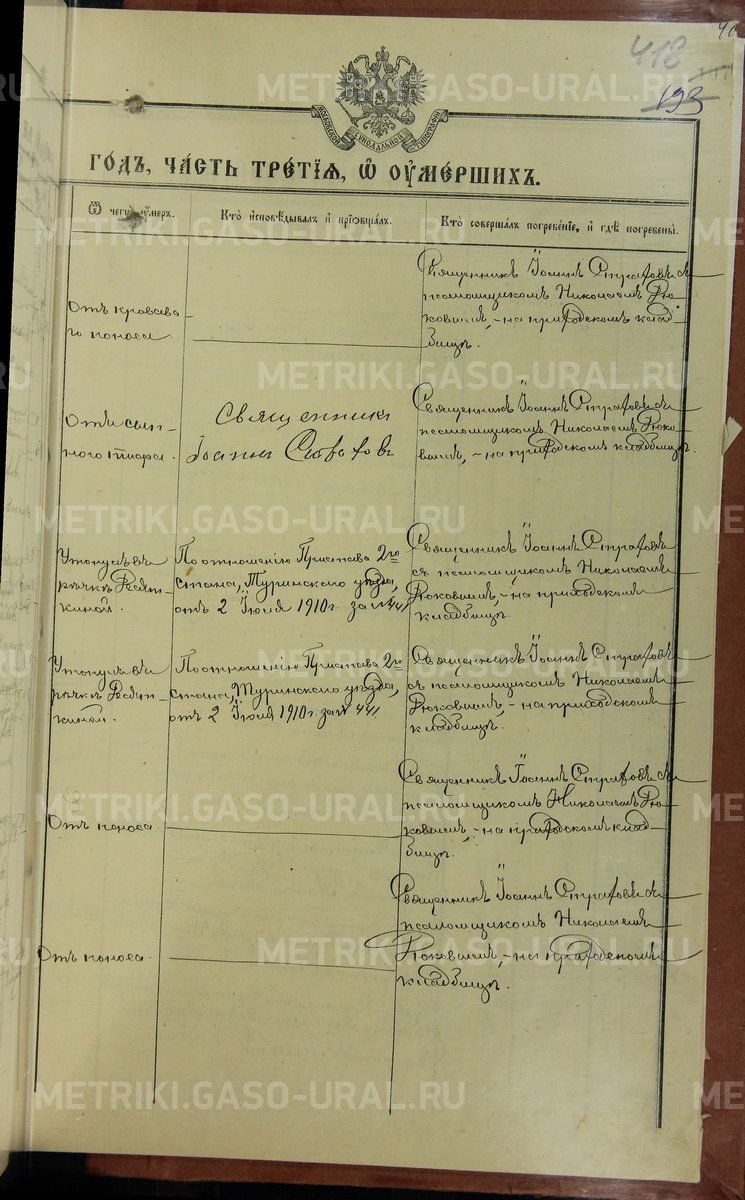 418
193
МОСКОВСКОЙ СѴНОДАЛЬНОЙ ТИПОГРАФІИ
ГОДЪ, ЧАСТЬ ТРЕТІЯ, Ѽ ОУМЕРШИХЪ.
Ѿ чегѡ оумеръ.
Кто исповѣдывалъ и пріобщалъ.
Кто совершалъ погребеніе, и гдѣ погребены.
Отъ кровава-
го поноса.
Священникъ Іоаннъ Стратовъ съ
псаломщикомъ Николаемъ Рю-
ковымъ, – на приходскомъ клад-
бищѣ.
Отъ сып-
ного тифа.
Священникъ
Іоаннъ
Священникъ Іоаннъ Стратовъ съ
псаломщикомъ Николаемъ Рюко-
вымъ, – на приходскомъ кладбищѣ.
Утонулъ въ
рѣчкѣ
киной.
По отношенію Пристава 2го
стана, Туринскаго уѣзда,
отъ 2 Іюля 1910 г. за № 441
Священникъ Іоаннъ Стратовъ
съ псаломщикомъ Николаемъ
Рюковымъ, – на приходскомъ
кладбищѣ.
Утонулъ въ
рѣчкѣ
киной.
По отношенію Пристава 2го
стана, Туринскаго уѣзда,
отъ 2 Іюля 1910 г. за № 441
Священникъ Іоаннъ Стратовъ
съ псаломщикомъ Николаемъ
Рюковымъ, – на приходскомъ
кладбищѣ.
Отъ поноса.
Священникъ Іоаннъ Стратовъ съ
псаломщикомъ Николаемъ Рю-
ковымъ, – на приходскомъ клад-
бищѣ.
Отъ поноса.
Священникъ Іоаннъ Стратовъ съ
псаломщикомъ Николаемъ
Рюковымъ, – на приходскомъ
кладбищѣ.
METRIKI.GASO-URAL.RU